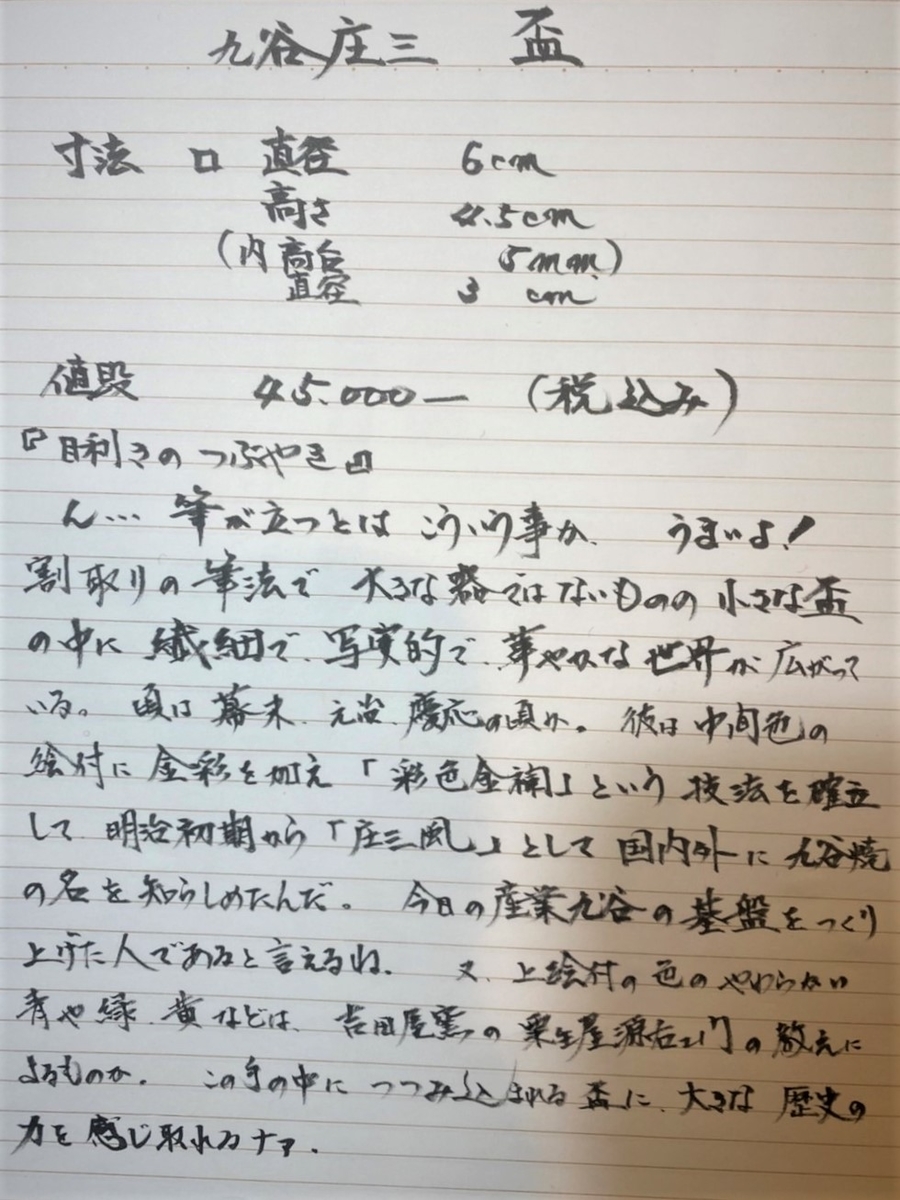 九谷庄三 盃
寸法 口 直径 6cm
高さ 4.5cm
(内 高台 5mm)
直径 3 cm
値段 45.000ー (税込み)
『目利きのつぶやき』
ん… 筆が立つとは こういう事か、 うまいよ!
割取りの筆法で 大きな器ではないものの 小さな盃
の中に 繊細で、写実的で、華やかな世界が広がって
いる。 頃は 幕末、元治、慶応の頃か。 彼は 中間色の
絵付に 金彩を加え 「彩色金襴」という 技法を確立
して、明治初期から「庄三風」として 国内外に 九谷焼
の名を知らしめたんだ。 今日の産業九谷の基盤をつくり
上げた人であると言えるね、 又、上絵付の色のやわらかい
青や緑、黄などは、 吉田屋窯の 粟生屋源右エ門の教えに
よるものか。 この手の中に つつみ込まれる盃に、大きな歴史の
力を感じ取れるナァ.